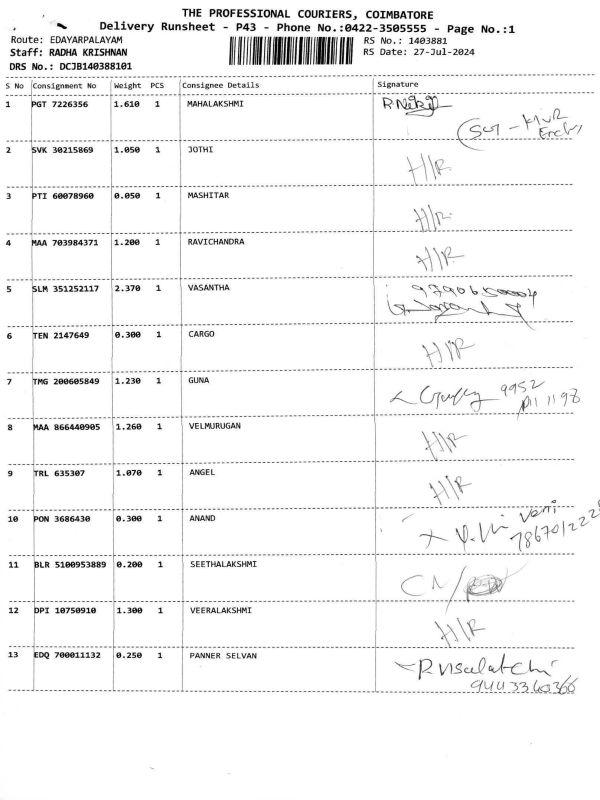 THE PROFESSIONAL COURIERS, COIMBATORE
Delivery Runsheet - P43 - Phone No.:0422-3505555 - Page No.:1
Route: EDAYARPALAYAM RS No.: 1403881
Staff: RADHA KRISHNAN RS Date: 27-Jul-2024
DRS No.: DCJB140388101
S No Consignment No Weight PCS Consignee Details Signature
1 PGT 7226356 1.610 1 MAHALAKSHMI
2 SVK 30215869 1.050 1 JOTHI H/R
3 PTI 60078960 0.050 1 MASHITAR H/R
4 MAA 703984371 1.200 1 RAVICHANDRA H/R
5 SLM 351252117 2.370 1 VASANTHA
6 TEN 2147649 0.300 1 CARGO H/R
7 TMG 200605849 1.230 1 GUNA 9952
8 MAA 866440905 1.260 1 VELMURUGAN H/R
9 TRL 635307 1.070 1 ANGEL H/R
10 PON 3686430 0.300 1 ANAND
11 BLR 5100953889 0.200 1 SEETHALAKSHMI
12 DPI 10750910 1.300 1 VEERALAKSHMI H/R
13 EDQ 700011132 0.250 1 PANNER SELVAN